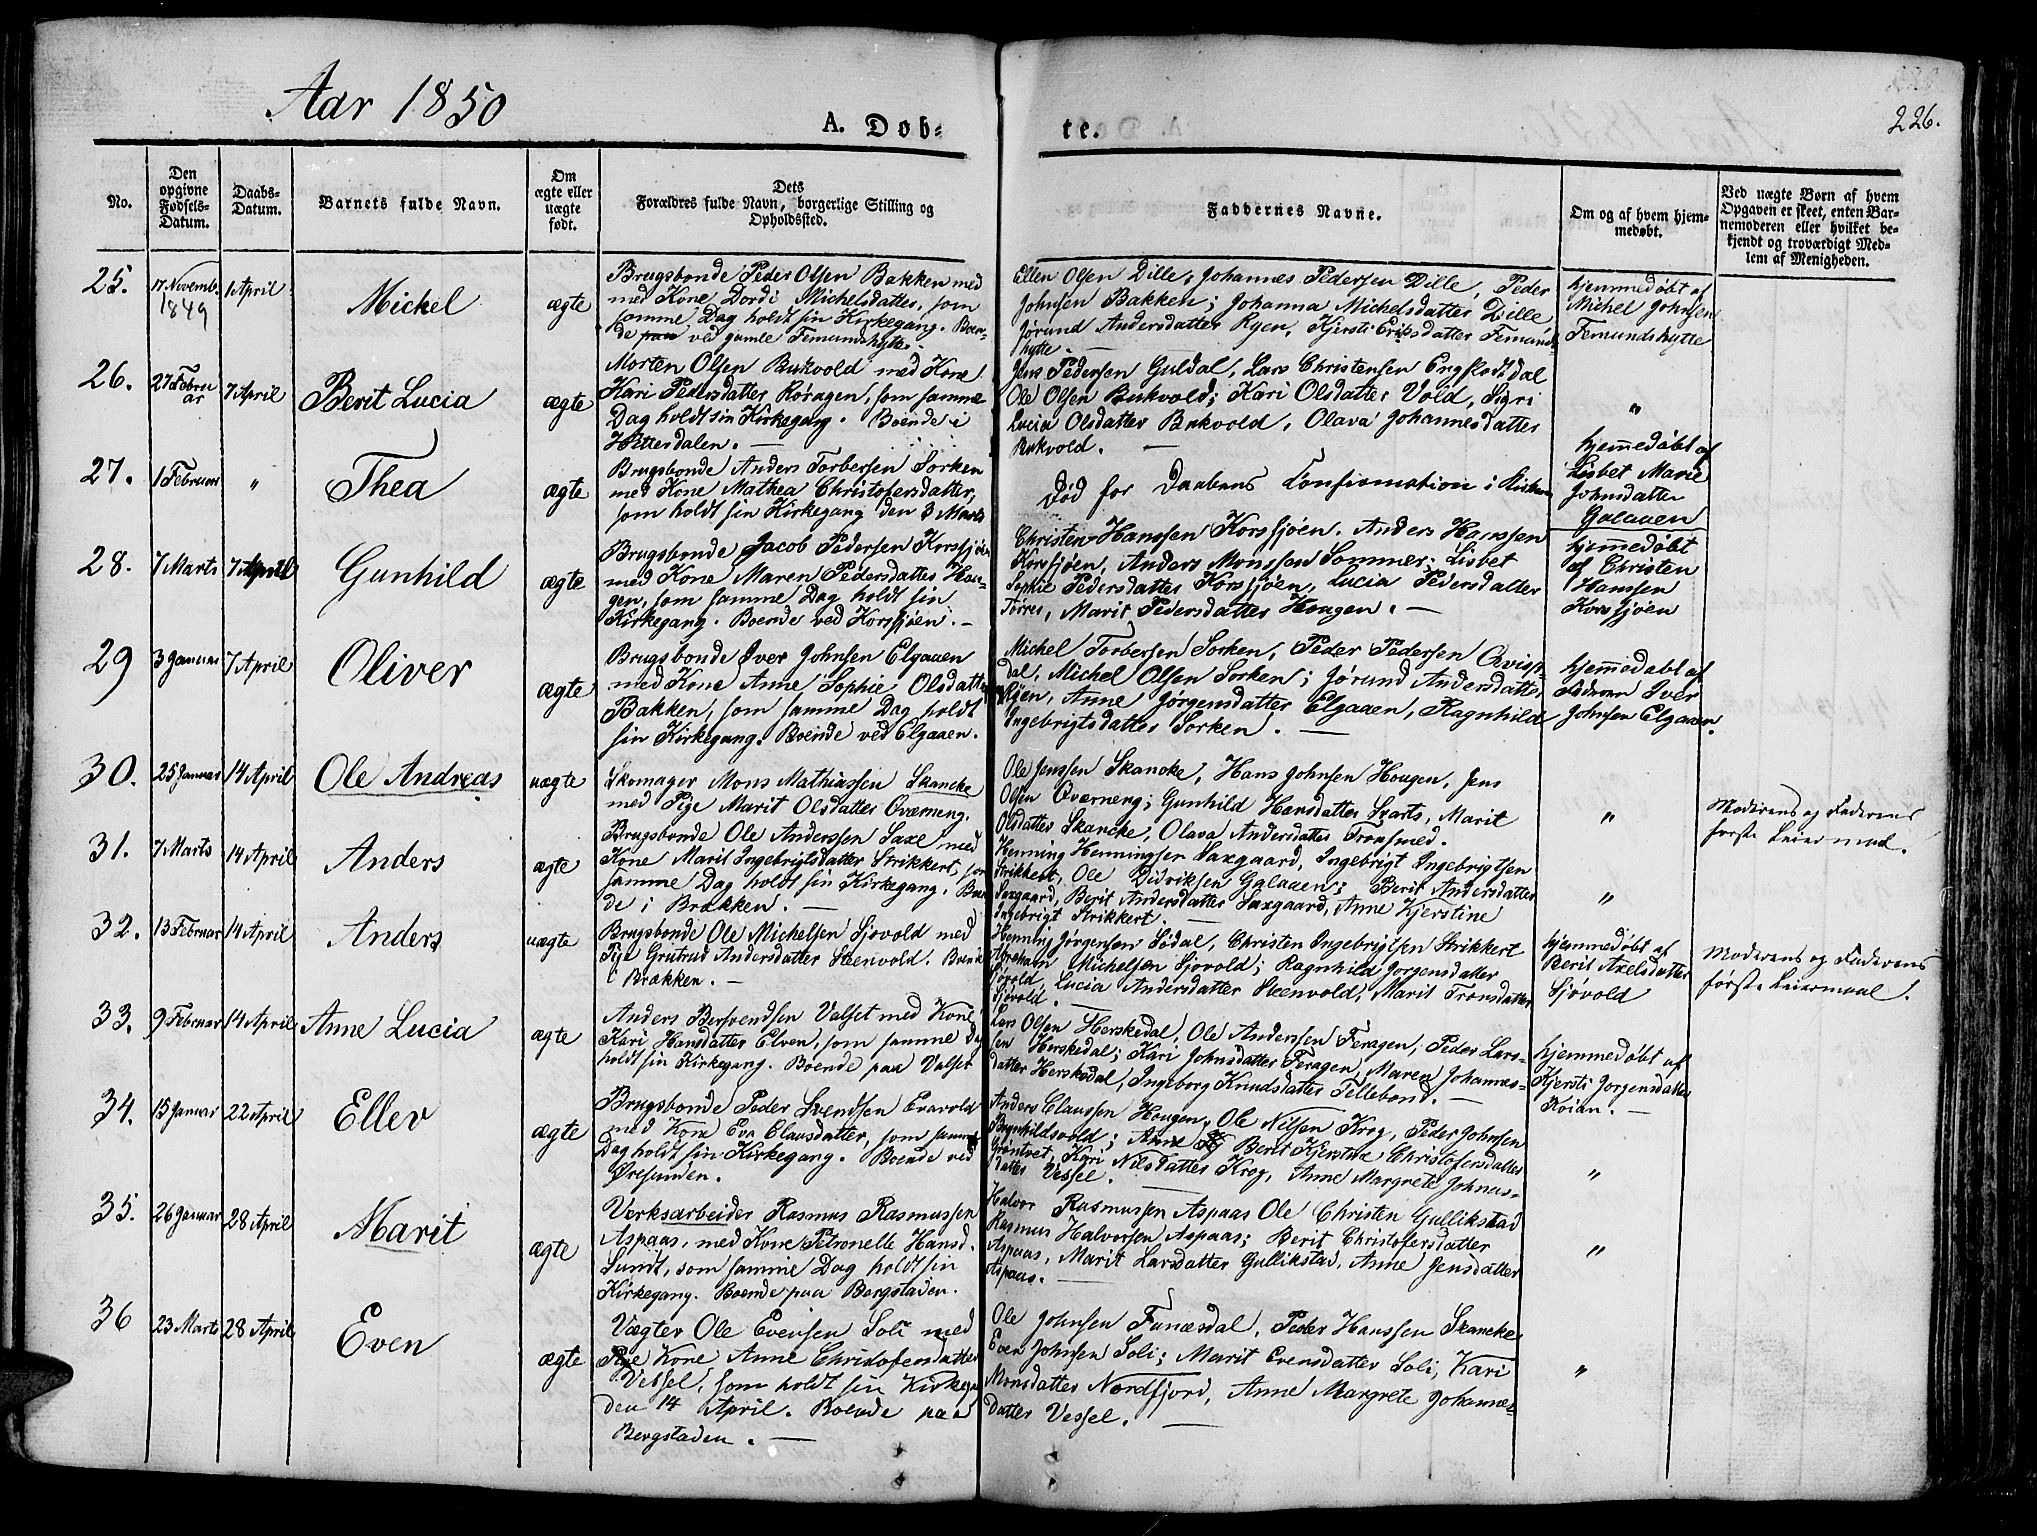 Aar 1850
A. Døb-
te.
226.
No.
Den
opgivne
Fødsels-
Datum.
Daabs-
Datum.
Barnets fulde Navn.
Om
ægte eller
uægte
født.
Dets
Forældres fulde Navn, borgerlige Stilling og
Opholdssted.
Faddernes Navne.
Om og af hvem hjem-
medøbt.
Ved uægte Børn af hvem
Opgaven er skeet, enten Bar-
nemoderen eller hvilket be-
kjendt og troværdigt Med-
lem af Menigheden.
25.
17 Novemb.
1849
1 April
Mickel
ægte
Brugsbonde Peder Olsen Bakken med
med Kone Dordi Michelsdatter, som
samme Dag holdt sin Kirkegang. Boen-
de paa ved gamle Femunshytte.
Ellen Olsen Dille, Johannes Pedersen Dille, Peder
Johnsen Bakken; Johanna Michelsdatter Dille
Jørund Andersdatter Ryen, Kjersti Eriksdatter Femunds
hytte. —
hjemmedøbt af
Michel Johnsen
Femundshytte
26.
27 Febru
ar
7 April
Berit Lucia
ægte
Morten Olsen Bukvold med Kone
Kari Pedersdatter Røragen, som samme
Dag holdt sin Kirkegang. Boende i
Hitterdalen. —
Jens Pedersen Guldal, Lars Christensen Engslodtdal
Ole Olsen Bukvold; Kari Olsdatter Vold, Sigri
Lucia Olsdatter Bukvold, Olava Johannesdatter
Bukvold. —
"
27.
1 Februar
"
Thea
ægte
Brugsbonde Anders Torbersen Sorken
med Kone Mathea Christofersdatter,
som holdt sin Kirkegang den 3 Marts
Død før Daabens Confirmation i Kirken
hjemmedøbt af
Lisbet Marie
Johnsdatter
Galaaen
28.
7 Marts
7 April
Gunhild
ægte
Brugsbonde Jacob Pedersen Korssjøen
med Kone Maren Pedersdatter Hau-
gen, som samme Dag holdt sin
Kirkegang. Boende ved Korssjøen. —
Christen Hanssen Korssjøen. Anders Hanssen
Korssjøen, Anders Monssen Sommer; Lisbet
Sophie Pedersdatter Korssjøen, Lucia Pedersdatter
Torres, Marit Pedersdatter Hougen. —
hjemmedøbt
af Christen
Hanssen
Korssjøen
29
3 Januar
7 April
Oliver
ægte
Brugsbonde Iver Johnsen Elgaaen
med Kone Anne Sophie Olsdatter
Bakken, som samme Dag holdt
sin Kirkegang. Boende ved Elgaaen.
Michel Torbersen Sorken, Peder Pedersen Qvisp-
dal, Michel Olsen Sorken; Jørund Andersdatter
Røen, Anne Jørgensdatter Elgaaen, Ragnhild
Ingebrigtsdatter Sorken. —
hjemmedøbt af
Faderen Iver
Johnsen Elgaaen.
30.
25 Januar
14 April
Ole Andreas
uægte
Skomager Mons Mathiassen Skancke
med Pige Marit Olsdatter Øverneng.
Ole Jenssen Skancke, Hans Johnsen Hougen, Jens
Olsen Øverneng; Gunhild Hansdatter Skarts, Marit
Olsdatter Skancke, Olava Andersdatter Tronsmed.
"
Moderens og Faderens
første Leiermaal.
31.
7 Marts
14 April
Anders
ægte
Brugsbonde Ole Anderssen Saxe med
Kone Marit Ingebrigtsdatter Strikkert, som
samme Dag holdt sin Kirkegang. Boen
de i Brækken. —
Henning Henningsen Saxgaard, Ingebrigt Ingebrigtsen
Strikkert, Ole Didriksen Galaaen; Berit Andersdatter
Saxgaard, Berit Andersdatter Saxgaard, Anne Kjerstine
Ingebrigt Strikkert. —
"
32.
13 Februar
14 April
Anders
uægte
Brugsbonde Ole Michelsen Sjovold med
Pige Grutrud Andersdatter Steenvold. Boende
i Brækken. —
Henning Jørgensen Sødal, Christen Ingebrigtsen Strikkert
Abraham Michelsen Sjovold; Ragnhild Jorgensdatter
Sjövold, Lucia Andersdatter Steenvold, Marit Tronsdatter
Sjövold.
hjemmedøbt af
Berit Axelsdatter
Sjøvold
Moderens og Faderens
første Leiermaal.
33.
9 Februar
14 April
Anne Lucia
ægte
Anders Bersvendsen Valset med Kone
Kari Hansdatter Elven, som samme Dag
holdt sin Kirkegang. Boende paa Valset
Lars Olsen Herskedal, Ole Anderssen Feragen, Peder Lars-
sen Herskedal; Kari Johnsdatter Feragen, Maren Johannes-
datter Herskedal, Ingeborg Knudsdatter Tellebond. —
hjemmedøbt af
Kjersti Jorgensdatter
Koian. —
34.
15 Januar
22 April
Ellev
ægte
Brugsbonde Peder Svendsen Evavold
med Kone Eva Clausdatter, som samme
Dag holdt sin Kirkegang. Boende ved
Øresunden.
Anders Claussen Hougen, Ole Nilsen Krog, Peder Johnsen
Bagnhildsvold; Anne Berit Kjerstine Christofersdatter
Grøntvet, Kari Nilsdatter Krog, Anne Margrete Johnns-
datter Vessel. —
"
35.
26 Januar
28 April
Marit
ægte
Verksarbeider Rasmus Rasmussen
Aspaas, med Kone Petronelle Hansd.
Sundt, som samme Dag holdt sin
Kirkegang. Boende paa Bergstaden.
Halvor Rasmussen Aspaas Ole Christen Gullikstad
Rasmus Halvorsen Aspaas; Berit Christofersdatter
Aspaas, Marit Larsdatter Gullikstad, Anne Jensdatter
Aspaas. —
"
36
23 Marts
28 April
Even
ægte
Vægter Ole Evensen Soli med
Pige Kone Anne Christofersdatter
Vessel, som holdt sin Kirkegang
den 14 April. Boende paa
Bergstaden. —
Ole Johnsen Funæsdal, Peder Hanssen Skancke
Even Johnsen Soli; Marit Evensdatter Soli, Kari
Monsdatter Nordfjord, Anne Margrete Johannes-
datter Vessel. —
"